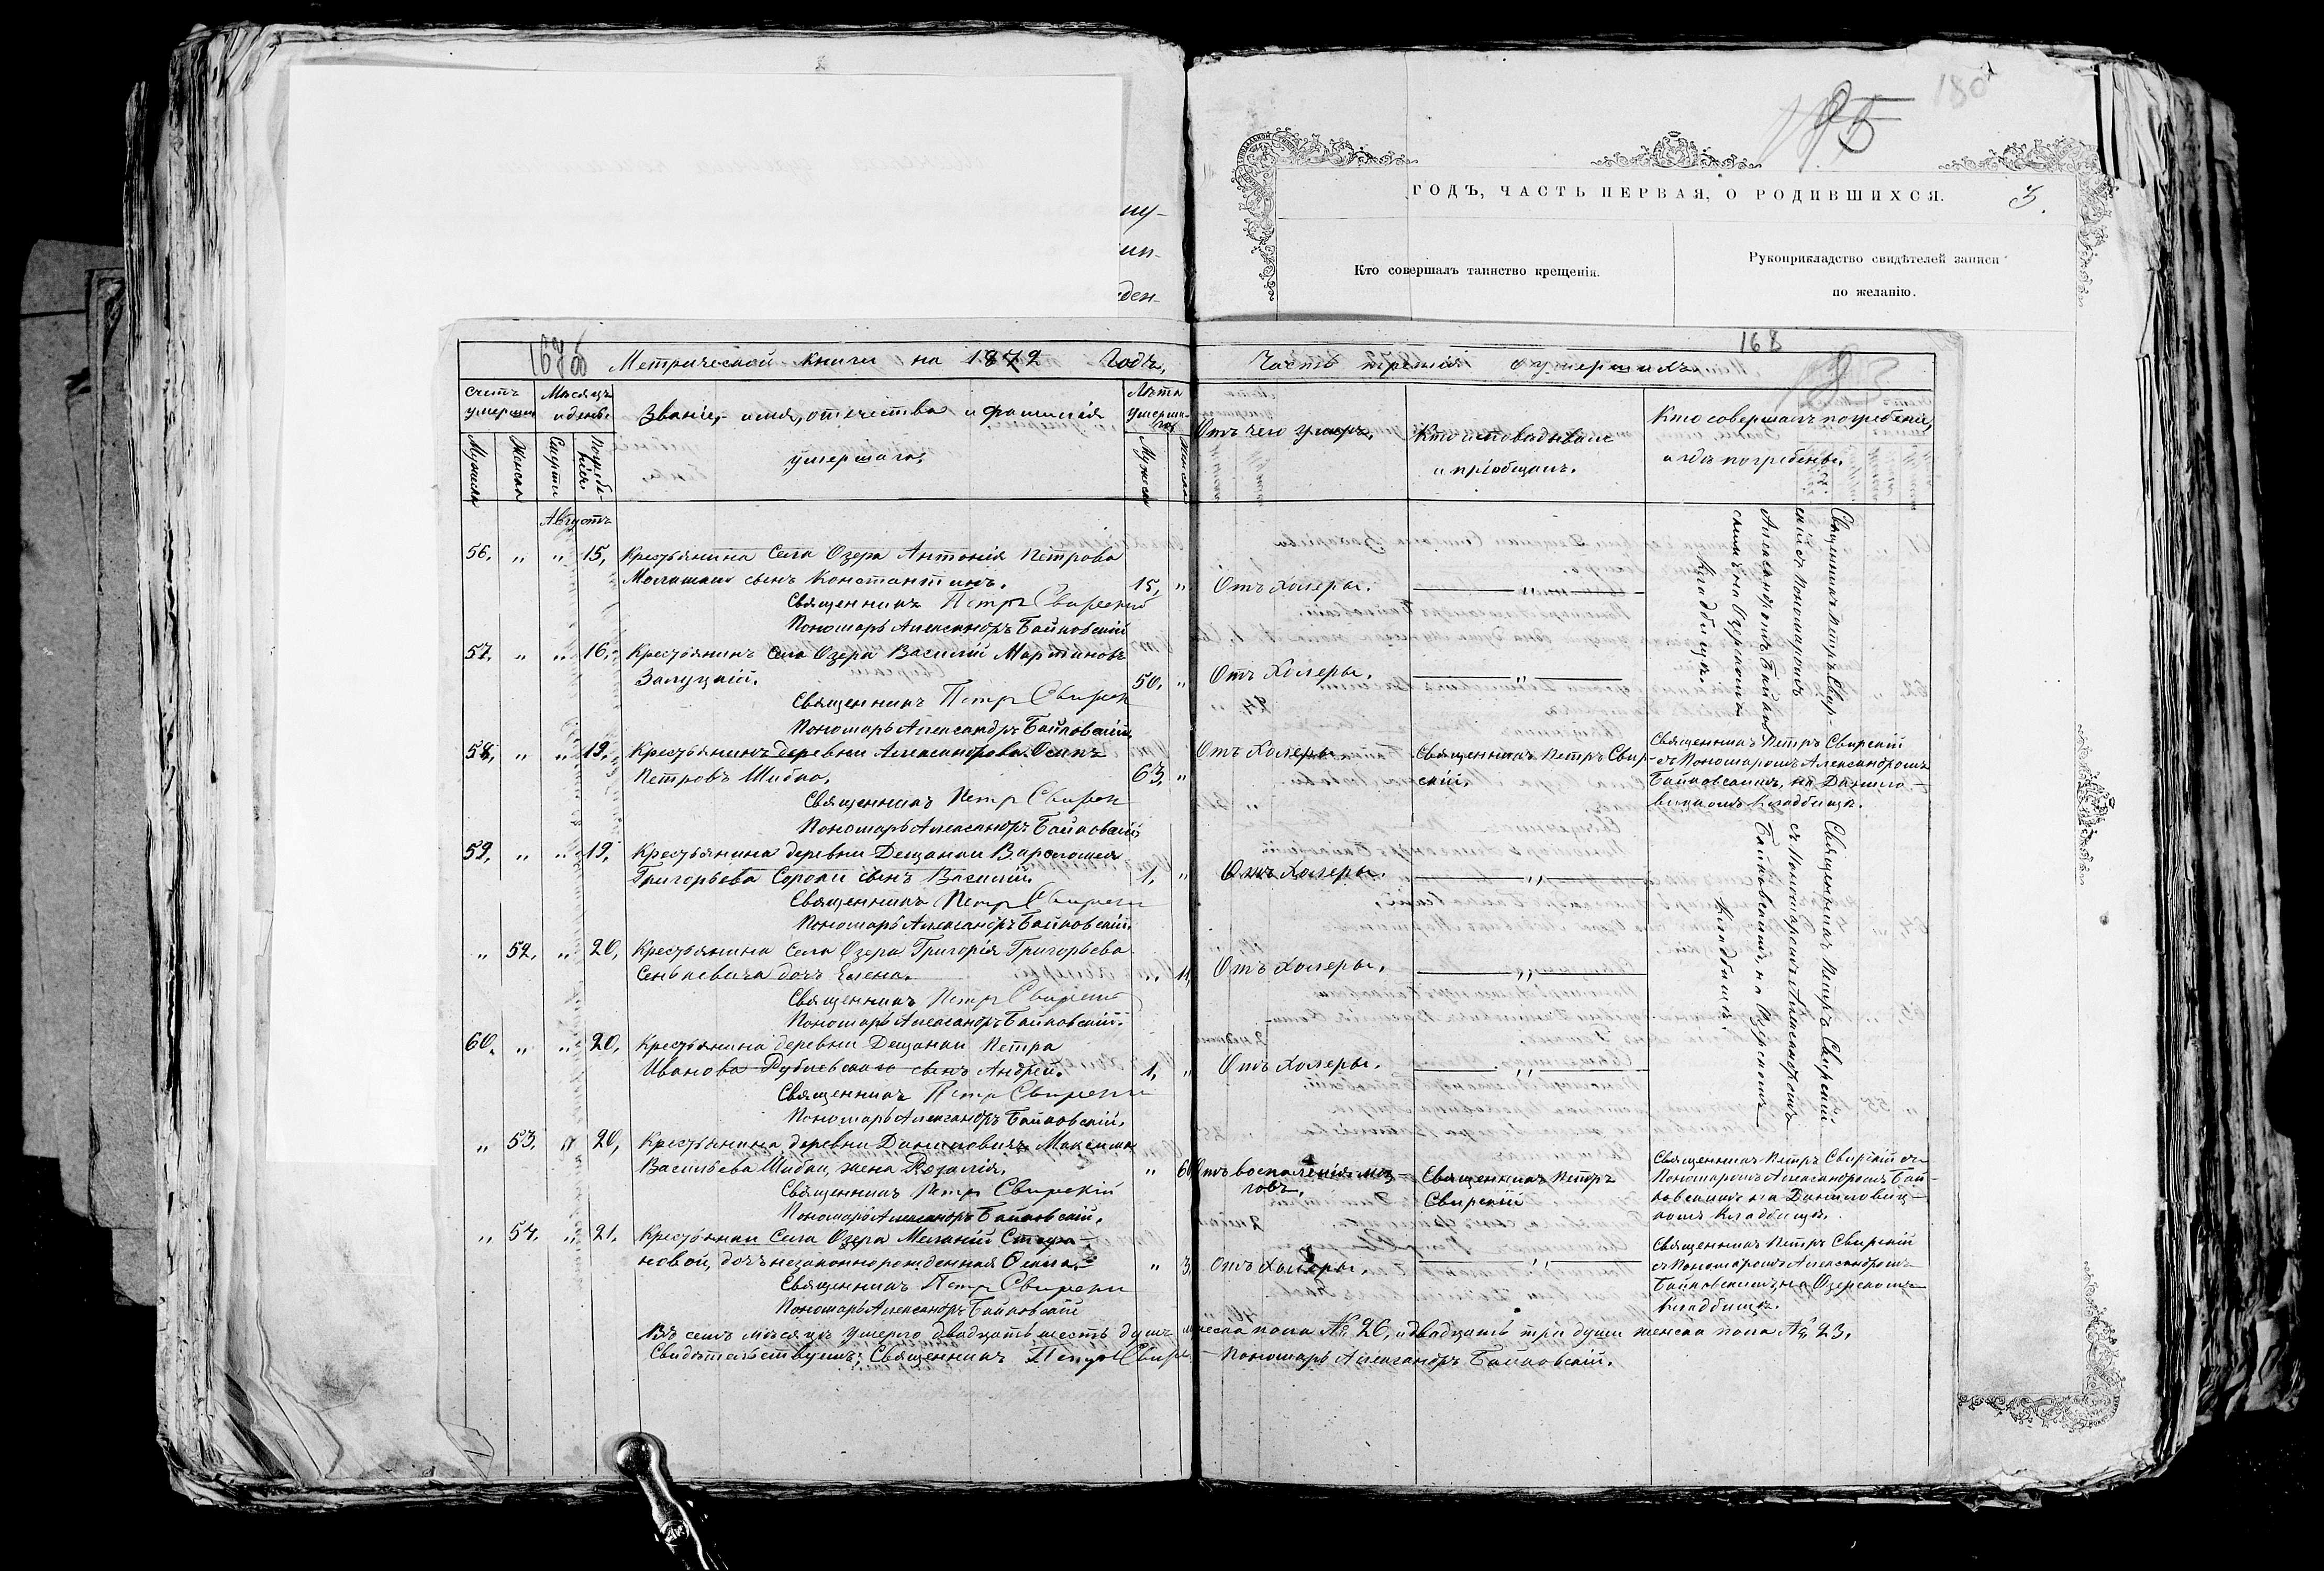 185
180
ГОДЪ, ЧАСТЬ ПЕРВАЯ, О РОДИВШИХСЯ.
3.
Кто совершалъ таинство крещенія.
Рукоприкладство свидѣтелей записи
по желанію.
ну-
ден-
168
Метрической книги на 1872 Годъ,
Часть третія о умершихъ
Счетъ умерши
Мѣсяцъ и день.
Званіе, имя, отчество и фамилія
умершаго,
Лѣта умерша-го
Отъ чего умеръ,
Кто исповѣдывалъ
и пріобщалъ.
Кто совершалъ погребеніе,
и гдѣ погребены.
Мужска
Женска
Смерти
Погребе-
нія.
Мужска
Женска
Августъ
56. „ „ 15, Крестьянина Села Озера Антонія Петрова
Молышки сынъ Константинъ. 15, „ Отъ Холеры. „
Священникъ Петръ Свирскій
Пономарь Александръ Байковскій
Священникъ Петръ Свир-
скій съ Пономаромъ
Александромъ Байков-
скимъ на Озерскомъ
Кладбищѣ.
57. „ „ 16. Крестьянинъ Села Озера Василій Мартиновъ
Залуцкій. 50. „ Отъ Холеры. „
Священникъ Петръ Свирск
Пономарь Александръ Байковскій
58. „ „ 19. Крестьянинъ деревни Александрова Осипъ
Петровъ Шибко, 63, „ Отъ Холеры Священникъ Петръ Свир-
скій,
Священникъ Петръ Свирск
Пономарь Александръ Байковскій
Священникъ Петръ Свирскій
съ Пономаромъ Александромъ
Байковскимъ, на Данило-
вицкомъ Кладбищѣ.
59. „ „ 19. Крестьянина деревни Дещанки Варѳоломея
Григорьева Сороки сынъ Василій. 1, „ Отъ Холеры. „
Священникъ Петръ Свирски
Пономарь Александръ Байковскій.
Священникъ Петръ Свирскій
съ Пономаромъ Александромъ
Байковскимъ, на Озерскомъ
Кладбищѣ.
„ 52. „ 20, Крестьянина Села Озера Григорія Григорьева
Сенькевича дочь Елена. „ 11, Отъ Холеры. „
Священникъ Петръ Свирски
Пономарь Александръ Байковскій.
60. „ „ 20, Крестьянина деревни Дещанки Петра
Иванова Рублевскаго сынъ Андрей. 1, „ Отъ Холеры. „
Священникъ Петръ Свирски
Пономарь Александръ Байковскій.
„ 53. „ 20, Крестьянина деревни Даниловичъ Максима
Васильева Шибки, жена Розалія, „ Отъ воспаленія моз-
говъ, Священникъ Петръ
Свирскій
Священникъ Петръ Свирскій
Пономарь Александръ Байковскій.
Священникъ Петръ Свирскій съ
Пономаромъ Александромъ Бай-
ковскимъ на Даниловиц-
комъ Кладбищѣ.
„ 54. „ 21. Крестьянки Села Озера Меланіи Стефа-
новой, дочь незаконнорожденная Олена. „ 3, Отъ Холеры. „
Священникъ Петръ Свирски
Пономарь Александръ Байковскій
Священникъ Петръ Свирскій
съ Пономаромъ Александромъ
Байковскимъ, на Озерскомъ
Кладбищѣ.
Въ семъ мѣсяцѣ умерло двадцать шесть душъ мужеска пола № 26, и двадцать три души женска пола № 23.
Свидѣтельствуемъ; Священникъ Петръ Свирск Пономарь Александръ Байковскій.